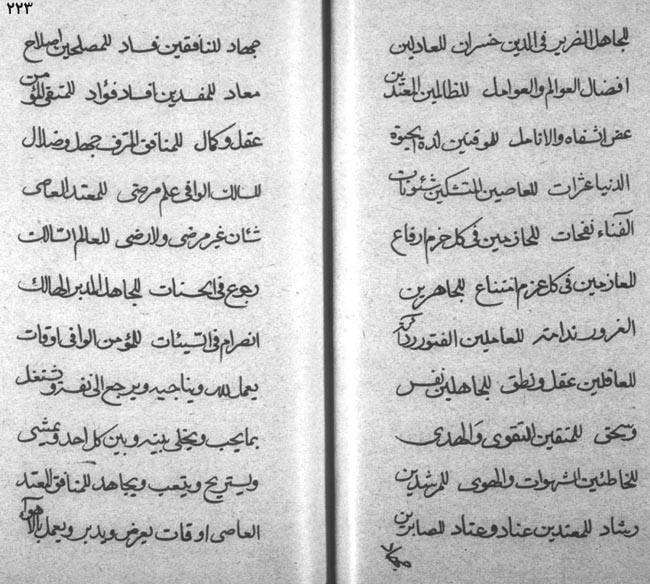 ٢٢٣
للجاهل الضرير فى الدين خسران للعادلين
افضال العوالم والعوامل للظالمين المعتدين
عض الشفاه والانامل للموقنين لدة الحيوة
الدنيا عثرات للعاصين المتشكين شئونات
الفناء نفحات للجازمين فى كل حزم ارقاع
للعازمين فى كل عزم امتناع للجاهرين
الغرور ندامة للعاملين الفتور
للعاقلين عقل ونطق للجاهلين نفس
للمتقين التقوى والهدى
للخاطئين الشهوات والهوى للمرشدين
رشاد للمعتدين عناد وعتاد للصابرين
جهاد
جهاد للنافقين فساد للمصلحين اصلاح
معاد للمفسدين افساد فؤاد للمتقى المؤمن
عقل وكمال للمنافق المترف جهل وضلال
للسالك الوافى علم مرضى للمعتد العاصى
شئان غير مرضى ولارضى للعالم السالك
رجوع فى الحسنات للجاهل المدبر الهالك
انصرام فى السيئات للمؤمن الوافى اوقات
يعمل لله ويناجيه ويرجع الى نفسه ويشتغل
بما يحب ويخلى بينه وبين كل احد ويمشى
ويستريح ويتعب ويجاهد للمنافق المعتد
العاصى اوقات يعرض ويدبر ويعمل بالاهواء